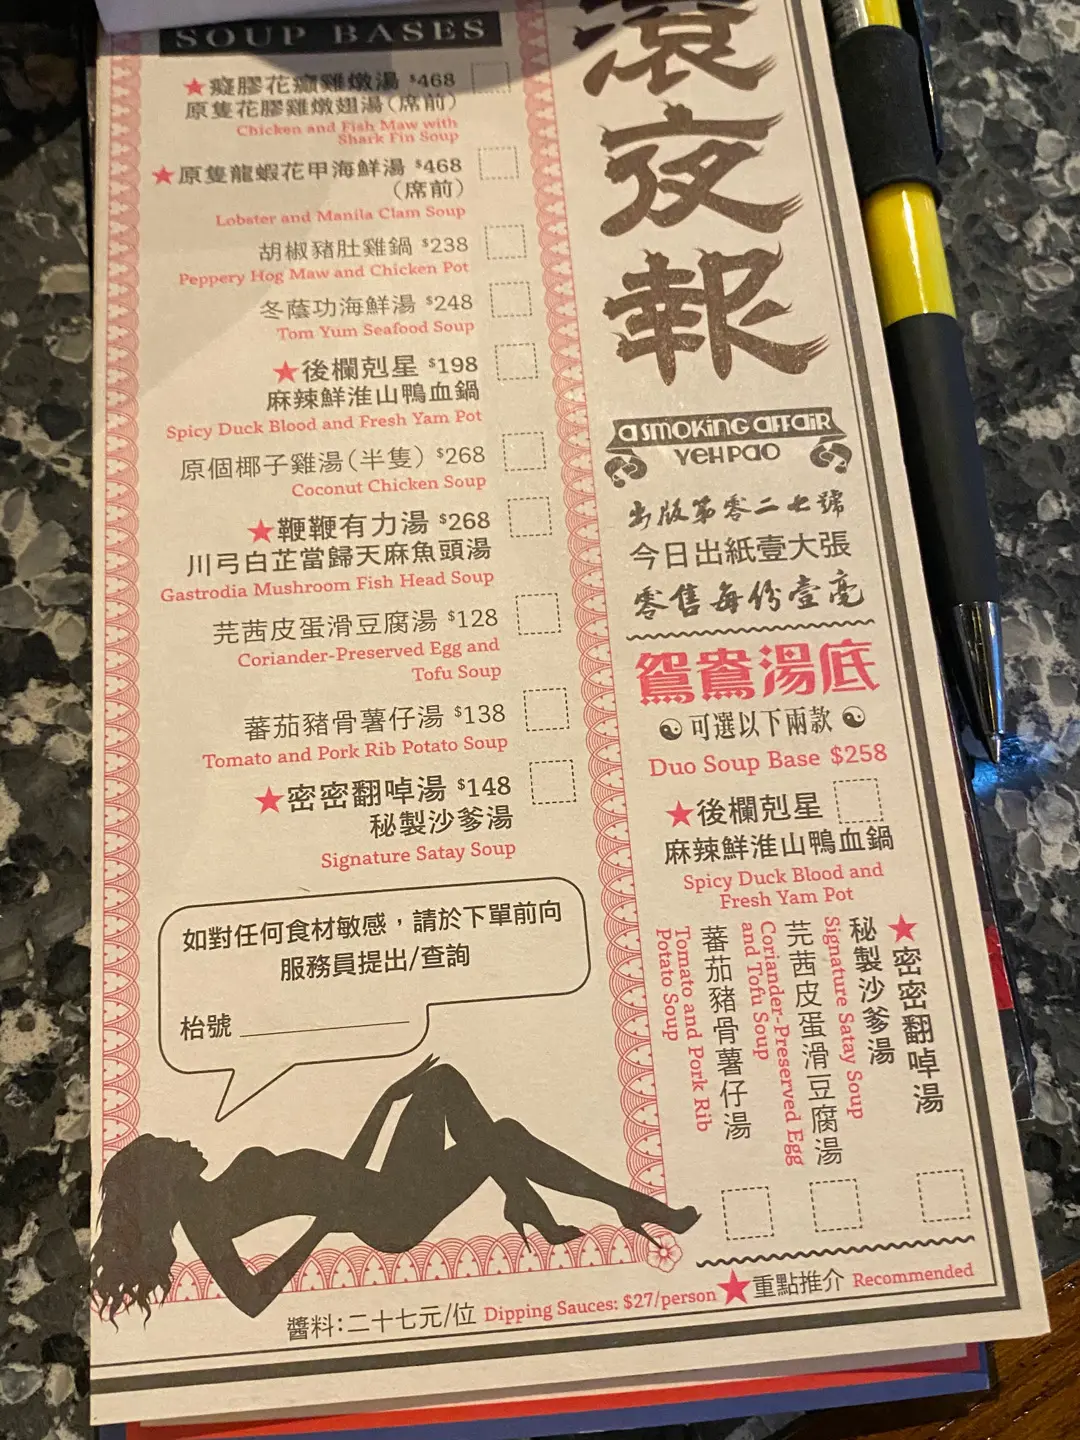 SOUP BASES
★癡膠花癲雞燉湯 $468
原隻花膠雞燉翅湯(席前)
Chicken and Fish Maw with
Shark Fin Soup
★原隻龍蝦花甲海鮮湯 $468
(席前)
Lobster and Manila Clam Soup
胡椒豬肚雞鍋 $238
Peppery Hog Maw and Chicken Pot
冬蔭功海鮮湯 $248
Tom Yum Seafood Soup
★後欄剋星 $198
麻辣鮮淮山鴨血鍋
Spicy Duck Blood and Fresh Yam Pot
原個椰子雞湯(半隻) $268
Coconut Chicken Soup
★鞭鞭有力湯 $268
川弓白芷當歸天麻魚頭湯
Gastrodia Mushroom Fish Head Soup
芫茜皮蛋滑豆腐湯 $128
Coriander-Preserved Egg and
Tofu Soup
蕃茄豬骨薯仔湯 $138
Tomato and Pork Rib Potato Soup
★密密翻啅湯 $148
秘製沙爹湯
Signature Satay Soup
如對任何食材敏感，請於下單前向
服務員提出/查詢
枱號
滾夜報
A SMOKING AFFAIR
YEH PAO
出版第零二七號
今日出紙壹大張
零售每份壹毫
鴛鴦湯底
可選以下兩款
Duo Soup Base $258
★後欄剋星
麻辣鮮淮山鴨血鍋
Spicy Duck Blood and
Fresh Yam Pot
★密密翻啅湯
秘製沙爹湯
Signature Satay Soup
芫茜皮蛋滑豆腐湯
Coriander-Preserved Egg
and Tofu Soup
蕃茄豬骨薯仔湯
Tomato and Pork Rib
Potato Soup
醬料:二十七元/位 Dipping Sauces: $27/person ★重點推介 Recommended